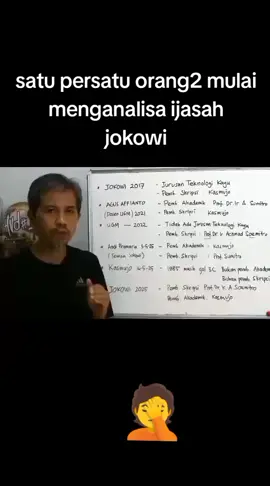 satu persatu orang2 mulai
menganalisa ijasah
jokowi
JOKOWI 2017 - Jurusan Teknologi Kayu
- Pemb Skripsi Kasmojo
AGUS - Pemb Akademik Prof. Dr. Ir A Sumitro
2021 - Pemb Skripsi Kasmojo
UGM - 2022 - Tidak Ada Jurusan Teknologi Kayu
- Pemb. Skripsi : Prof Dr Ir Achmad Soemitro
- Pemb Akademik : Kasmojo
- Pemb Skripsi : Prof Sumitro
Kasmojo - masih gol 3C Bukan pemb Akademik
Bukan pemb Skripsi
JOKOWI 2025 - Pemb Skripsi Prof Dr Ir. A Soemitro
Pemb Akademik. Kasmojo